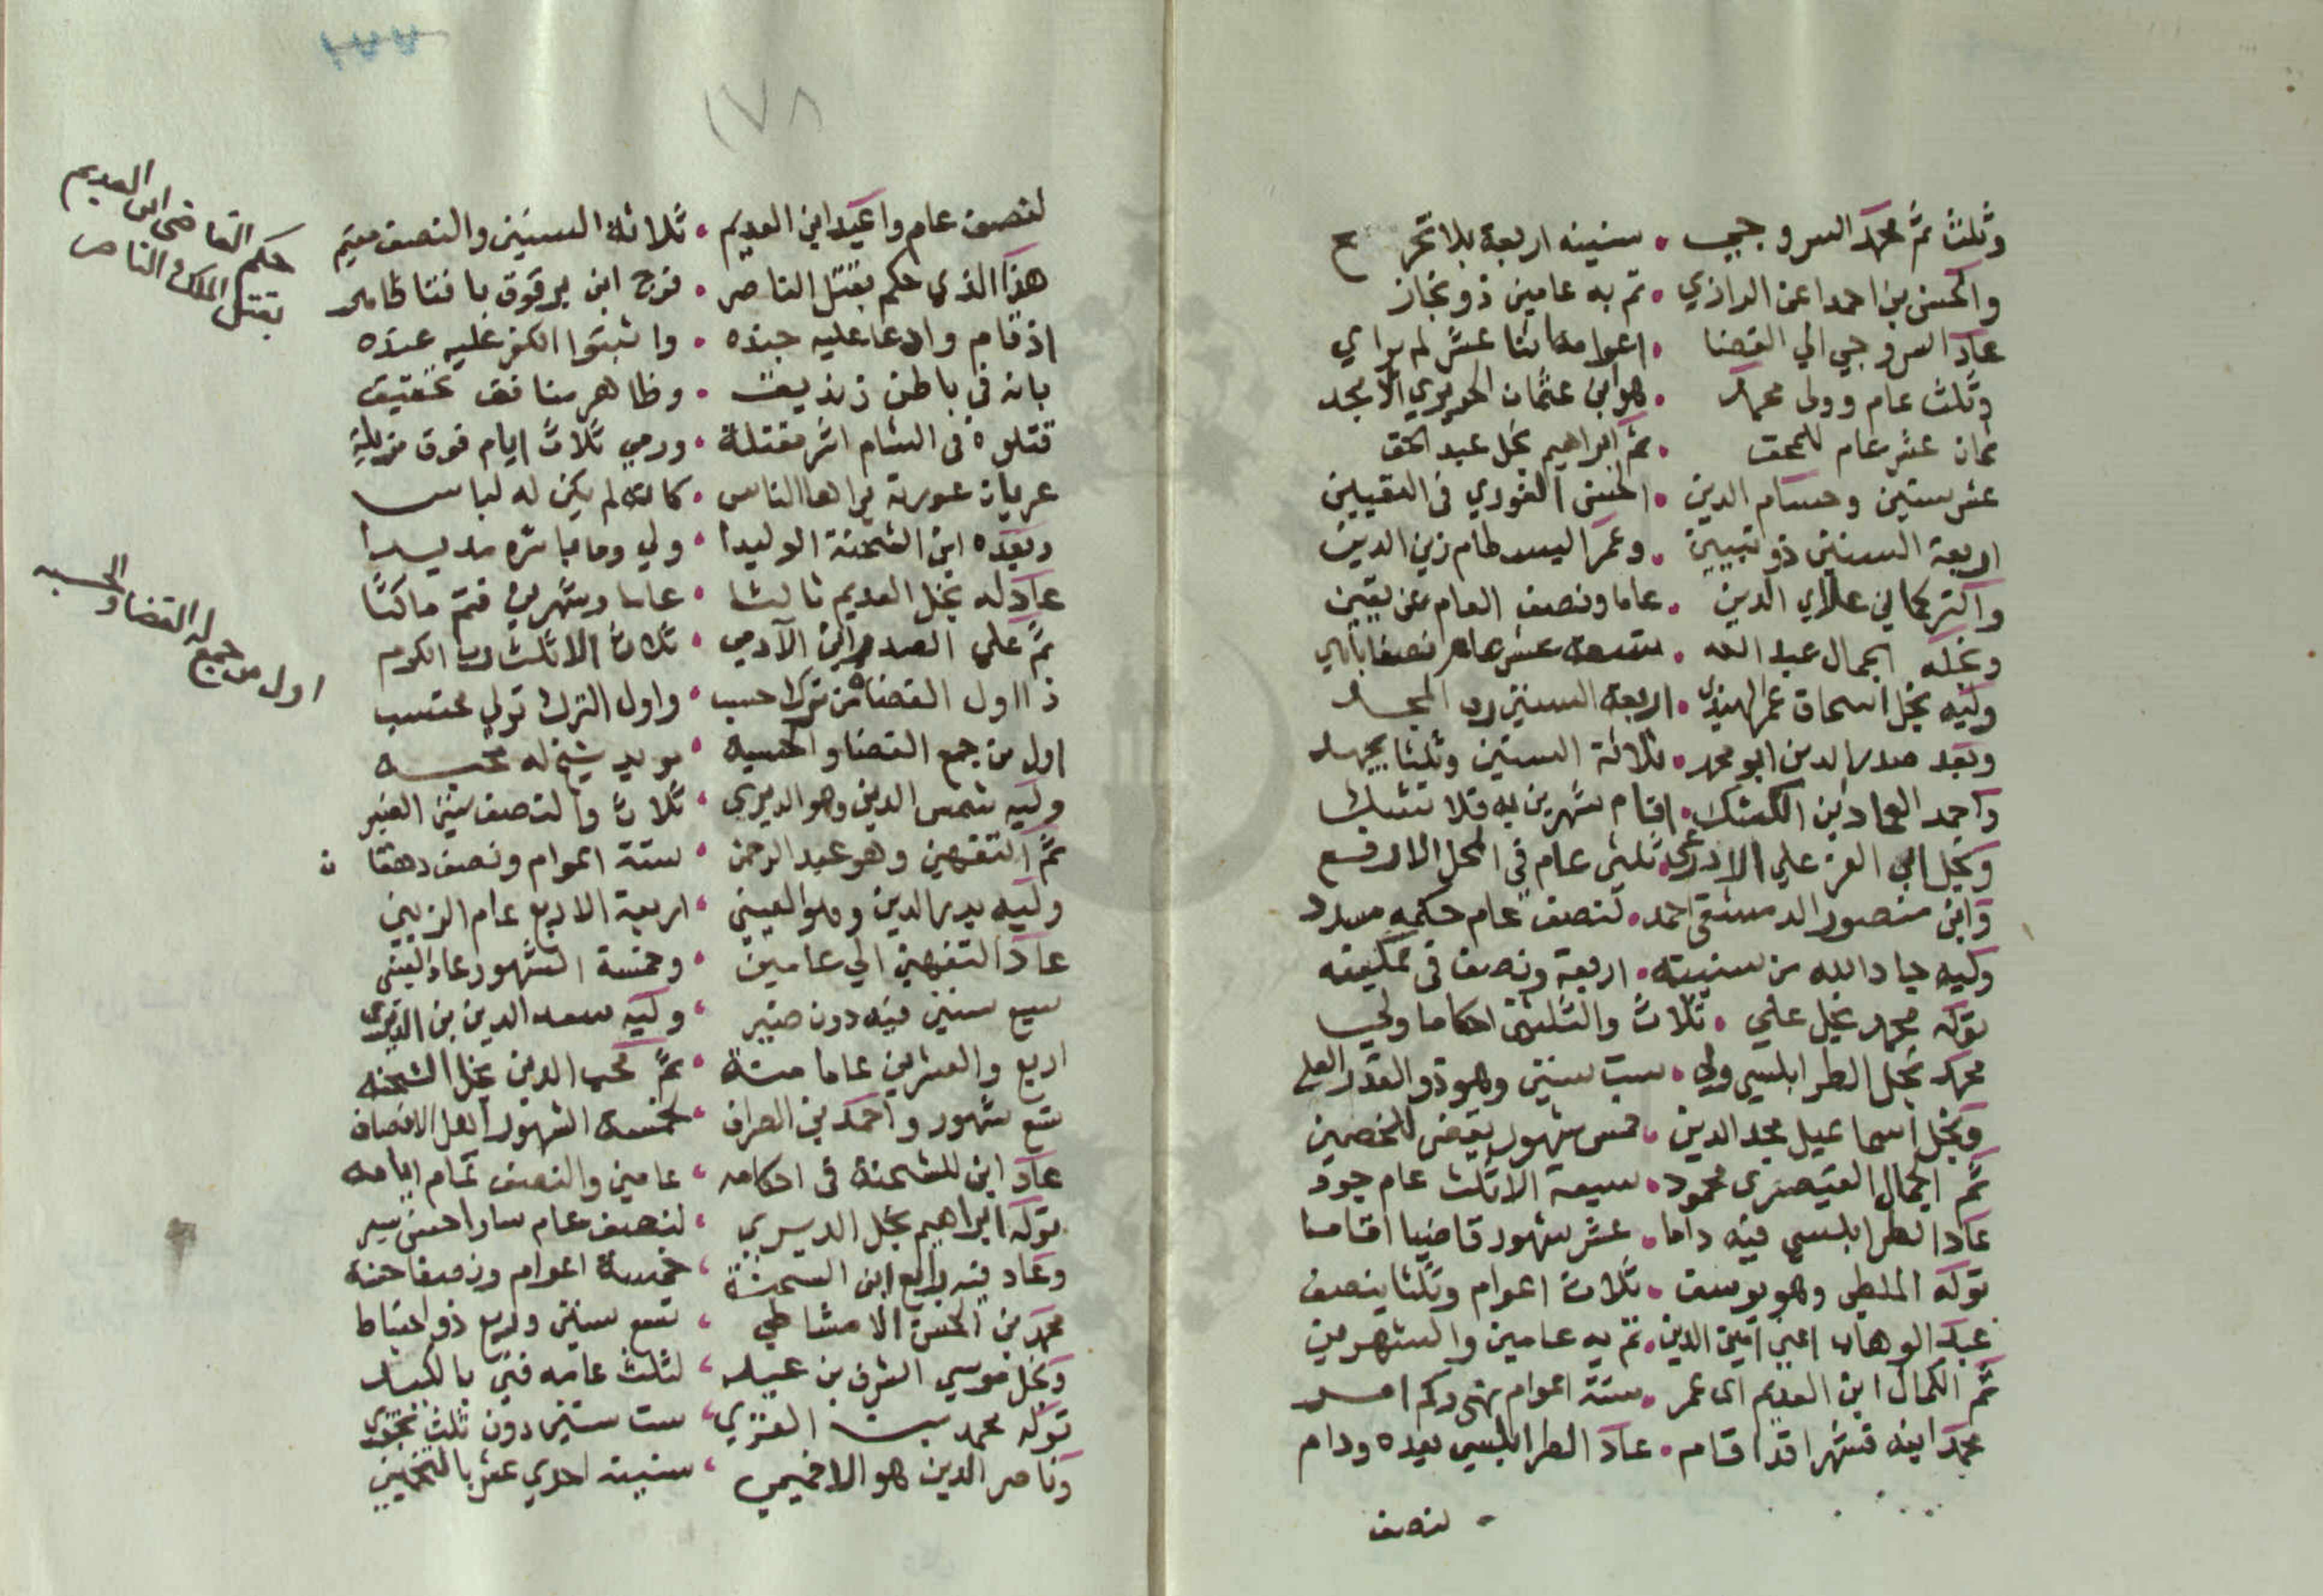 وثلث ثم محمد السروجي • سنينه اربعة بلا تحرج
والحسن بن احمد اعن الرازي • تم به عامين ذو نجاز
عاد السروجي الي القضا • اعوامه اثنا عشر لم يراي
وثلث عام وولى محمد • هو ابن عثمان الحريري الامجد
ثمان عشر عام للمحق • ثم ابراهيم نجل عبد الحق
عشر سنين وحسام الدين • الحسن الغوري في التقيين
اربعة السنين ذو تبيين • وعمر البسطام زين الدين
والتركماني علاي الدين • عاما ونصف العام عن يقين
ونجله الجمال عبد الله • تسعة عشر عام نصفا
وليه نجل اسحاق عمر الهندي • اربعة السنين رب المجد
وبعد صدر الدين ابو محمد • ثلاثة السنين وثلثا يجهد
واحمد العماد بن الكشك • اقام شهرين به فلا تشك
ونجل ابي العز علي الاذرعي • ثلثى عام في المحل الارفع
وابن منصور الدمشقي احمد • لنصف عام حكمه مسدد
وليه جاد الله من سنينه • اربعة ونصف في تمكينه
توله محمد نجل علي • ثلاث والثلثى احكاما ولي
محمد نجل الطرابلسي ولي • ست سنين وهو ذو القدر العلي
ونجل اسماعيل مجد الدين • خمس شهور يقضى للخصمين
ثم الجمال القيصرى محمود • سبعة الا ثلث عام جود
عاد الطرابلسي فيه داما • عشر شهور قاضيا اقاما
توله الملطي وهو يوسف • ثلاث اعوام وثلثا ينصف
عبد الوهاب اعني امين الدين • تم به عامين والشهرين
ثم الكمال ابن العديم اى عمر • ستة اعوام نهى وكم امر
محمد ابنه فشهرا قد اقام • عاد الطرابلسي بعده ودام
لنصف
١٧٨
لنصف عام واعيد ابن العديم • ثلاثة السنين والنصف مقيم
هذا الذي حكم بقتل الناصر • فرج ابن برقوق بافتا ظاهر
اذ قام وادعا عليه جنده • واثبتوا الكفر عليه عنده
بانه في باطن زنديق • وظاهر منافق تحقيق
قتلوه في الشام اشر مقتلة • ورمي ثلاث ايام فوق مزبلة
عريان عورته يراها الناس • كانه لم يكن له لباس
وبعده ابن الشحنة الوليدا • ولي وما باشره مديدا
عاد له نجل العديم ثالثا • عاما وشهرين فتم ماكثا
ثم علي الصدر ابن الآدمي • ثلاث الا ثلث رب الكرم
ذا اول القضاة من ترك حسب • واول الترك تولي محتسب
اول من جمع القضا والحسبة • مويد شيخ له محبه
وليه شمس الدين وهو الديري • ثلاث والنصف سنين الغير
ثم التفهني وهو عبد الرحمن • ستة اعوام ونصف دهقان
وليه بدر الدين وهو العيني • اربعة الاربع عام الزين
عاد التفهني الي عامين • وخمسة الشهور عاد العيني
سبع سنين فيه دون ضير • وليه سعد الدين بن الديري
اربع والعشرين عاما منة • ثم محب الدين نجل الشحنه
تسع شهور واحمد بن الصراف • خمسة الشهور اهل الانصاف
عاد ابن للشحنة في احكامه • عامين والنصف تمام ايامه
توله ابراهيم نجل الديري • لنصف عام سار احسن سير
وعاد فيه رابع ابن الشحنة • خمسة اعوام ونصفا
محمد بن الحسن الامشاطي • تسع سنين وربع ذو احتياط
ونجل موسي الشرف بن عيد • لثلث عامه فني
توله محمد بن الغزي • ست سنين دون ثلث نجزي
وناصر الدين هو الاخميمي • سنينه احدي عشر بالتخمين
حكم القاضي ابن العديم
بقتل الملك الناصر
اول من جمع له القضا والحسبه